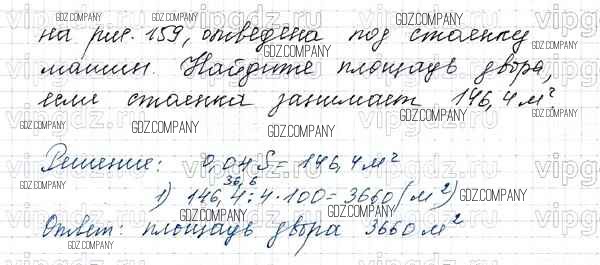 на рис. 159, отведена под стоянку
машин. Найдите площадь двора,
если стоянка занимает 146,4 м².
Решение: 0,04 S = 146,4 м²
36,6
1) 146,4 : 4 · 100 = 3660 (м²)
Ответ: площадь двора 3660 м²